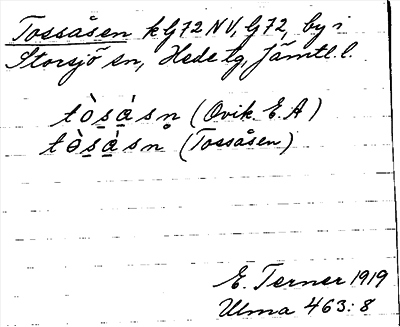 Tossåsen k G72 NV, G72, by i
Storsjö sn, Hede tg, Jämtl. l.
tòs̲à̲sn̥ (Ovik. E. A)
tòs̲à̲sn (Tossåsen)
E. Terner 1919
Ulma 463:8